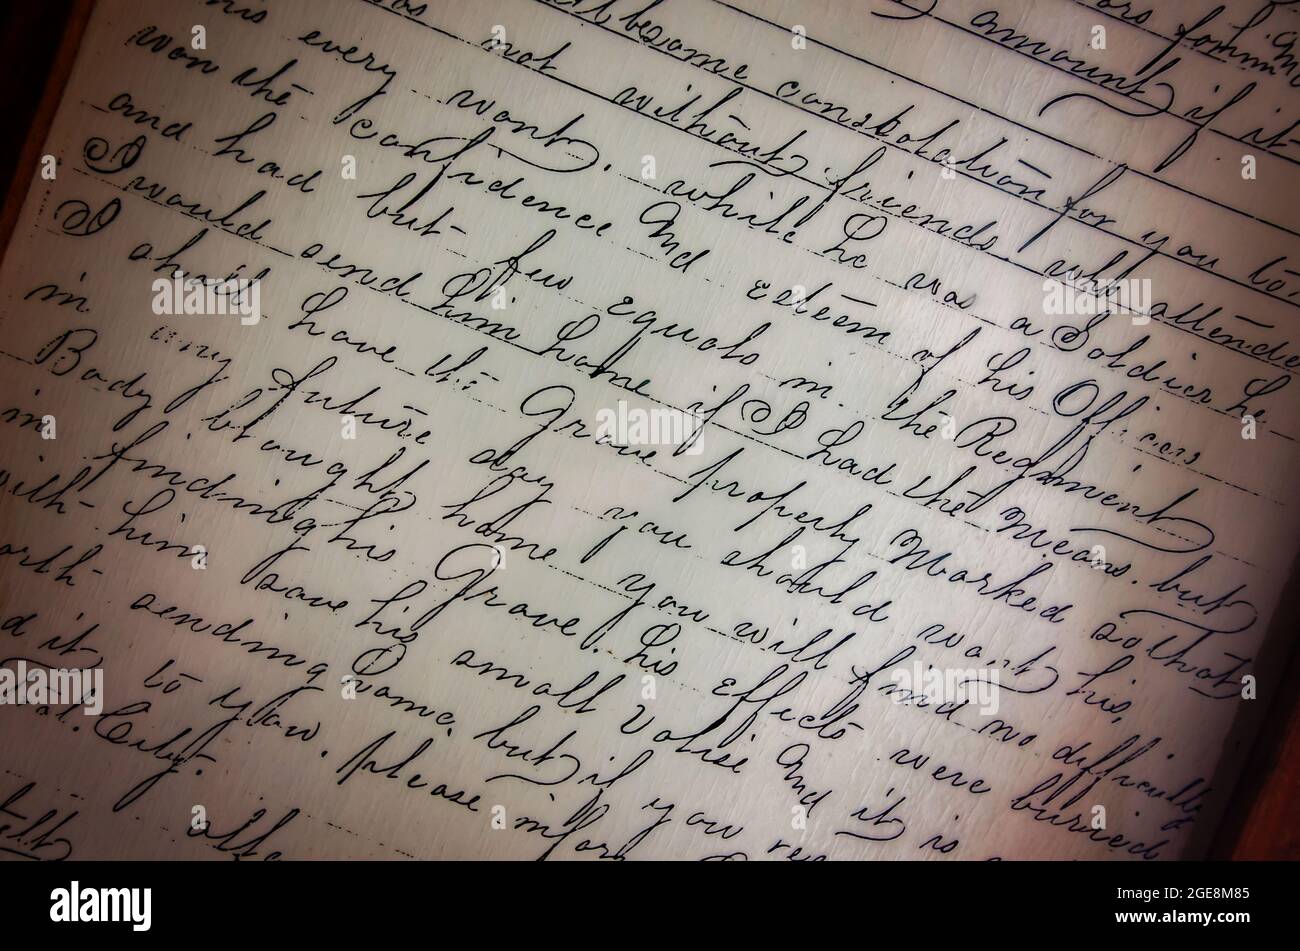 amount, if it
become consolation for you to
was not without friends, who attende
his every want. while he was a Soldier he
won the confidence and esteem of his Officers
and had but few equals in the Regiment
I would send him home if I had the Means. but
I shall have the Grave properly Marked so that
in any future day you should want his,
Body brought home you will find no difficulty
in finding his Grave. his effects were buried
with him save his small Valise and it is
orth sending home, but if you re
d it to you. please infor
tal. City.
alamy
Image ID: 2GE8M85
www.alamy.com